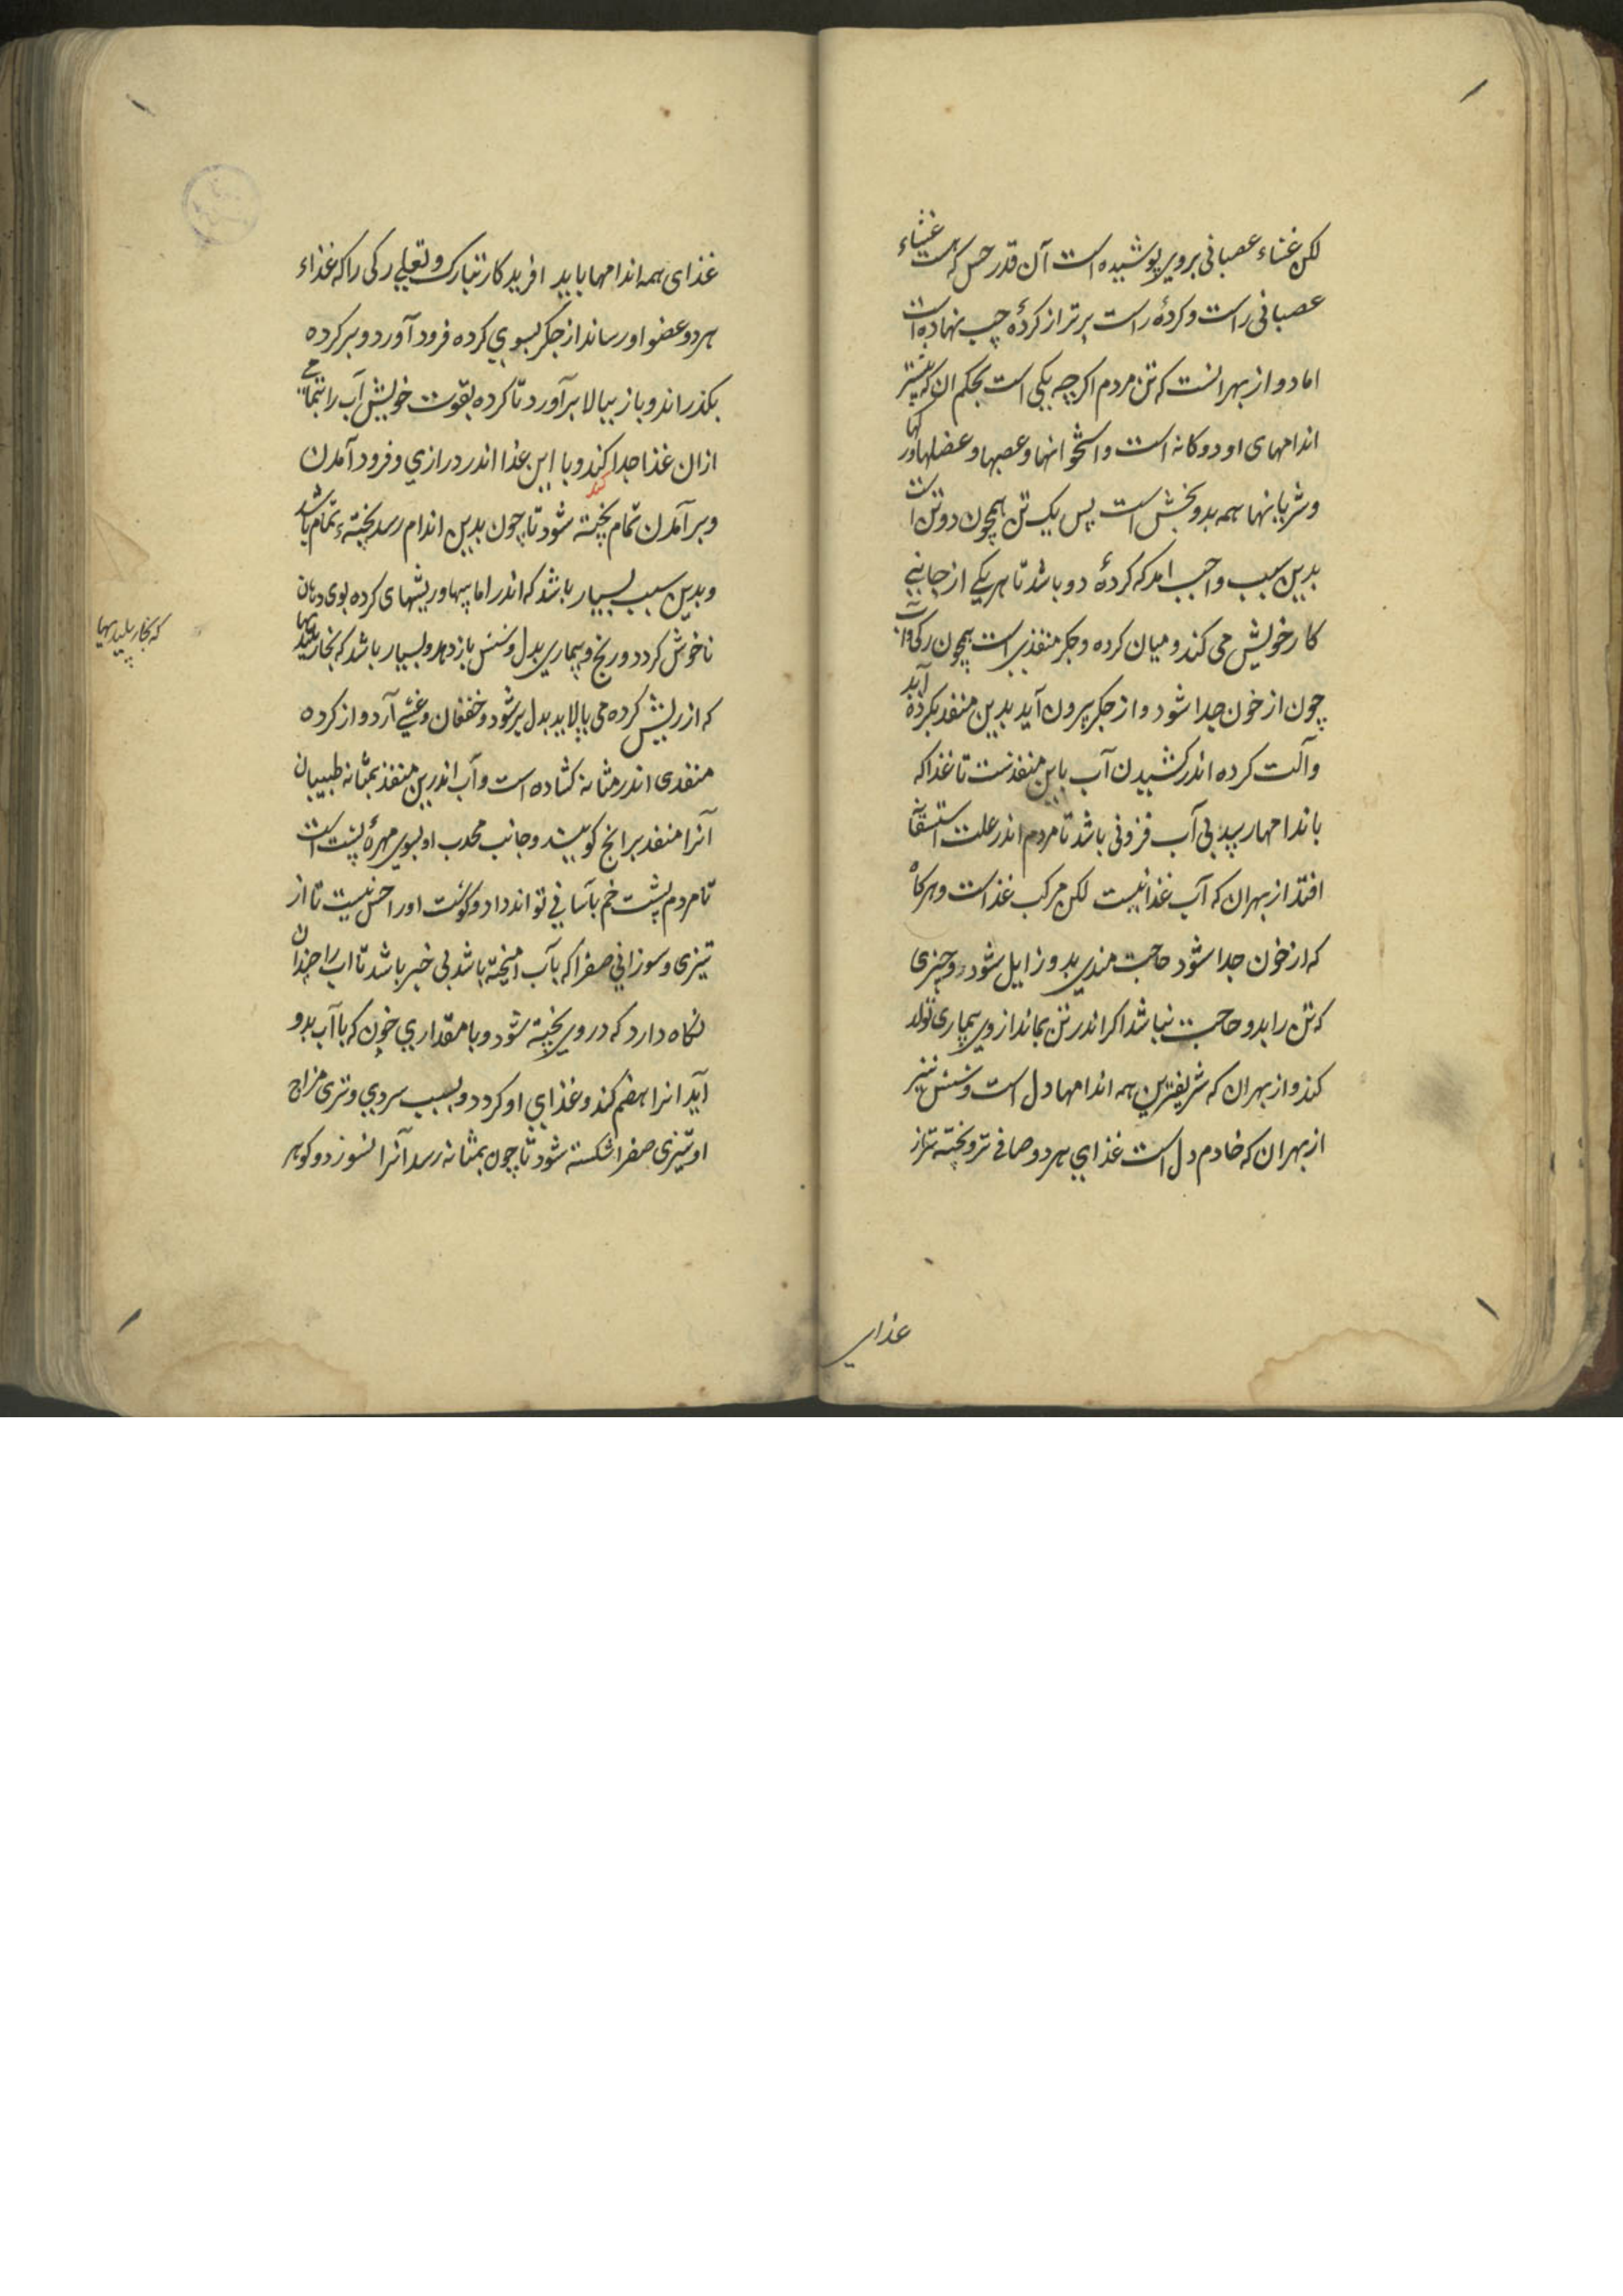 لکن غشاء عصبانی بروی پوشیده است آن قدر حس که هست غشاء
عصبانی راست و کردهٔ راست برتر از کردهٔ چپ نهاده است
اما دو از بهر انست که تن مردم اکرچه یکی است بحکم ان که بیشتر
اندامهای او دوکانه است و استخوانها و عصبها و عضلها و رکها
و شریانها همه بدو بخش است پس یک تن همچون دو تن است
بدین سبب واجب امد که کردهٔ دو باشد تا هر یکی از جانبی
کار خویش می کند و میان کرده و جکر منفذی است همچون رکی و آب
چون از خون جدا شود و از جکر بیرون آید بدین منفد بکرده آید
و آلت کرده اندر کشیدن آب باین منفذست تا غذا که
باندامها رسد بی آب فزونی باشد تا مردم اندر علت استسقآ
افتد از بهر ان که آب غذا نیست لکن مرکب غذاست و هرکاه
که از خون جدا شود حاجت مندی بدو زایل شود و چیزی
که تن را بدو حاجت نباشد اکر اندر تن بماند از وی بیماری تولد
کند و از بهر ان که شریفترین همه اندامها دل است و شش نیز
از بهر ان که خادم دل است غذای هر دو صافی تر و پخته تر از
غذای
غذای همه اندامها باید افریدکار تبارک و تعالی رکی را که غذاء
هر دو عضو او رساند از جکر بسوی کرده فرود آورد و بر کرده
بکذراند و باز ببالا برآورد تا کرده بقوت خویش آب را بتمامی
ازان غذا جدا کند و با این غذا اندر درازی و فرود آمدن
کند
و بر آمدن تمام پخته شود تا چون بدین اندام رسد پختهٔ تمام باشد
و بدین سبب بسیار باشد که اندر اماسیها و ریشهای کرده بوی دهان
ناخوش کردد و رنج و بیماری بدل و شش باز دهد و بسیار باشد که بخار پلیدیها
که بخار پلیدیها
که از ریش کرده می پالاید بدل بر شود و خفقان و غشی آرد و از کرده
منفدی اندر مثانه کشاده است و آب اندرین منفذ بمثانه طبیبان
آنرا منفد برابخ کویند و جانب محدب او بسوی مهرهٔ پشت است
تا مردم پشت خم بآسانی تواند داد و کوشت او را حس نیست تا از
تیزی و سوزانی صفرا که با آب امیخته باشد بی خبر باشد تا اب را چندان
نکاه دارد که در وی پخته شود و با مقداری خون که با آب بدو
آید انرا هضم کند و غذای او کردد و بسبب سردی و تری مزاج
او تیزی صفرا شکسته شود تا چون بمثانه رسد آنرا نسوزد و کوهر